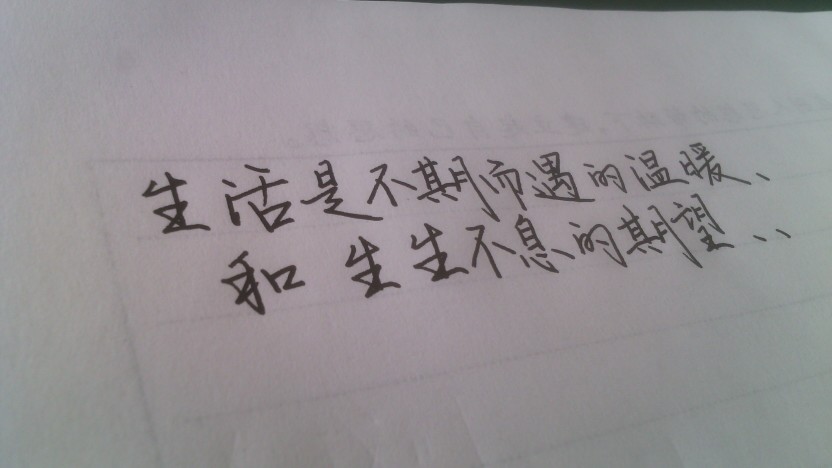 生活是不期而遇的温暖、
和生生不息的期望、、